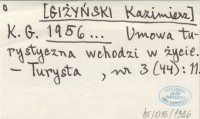 [GIŻYŃSKI Kazimierz]
K. G. 1956... Umowa tu-
rystyczna wchodzi w życie.
— Turysta, nr 3 (44): 11.